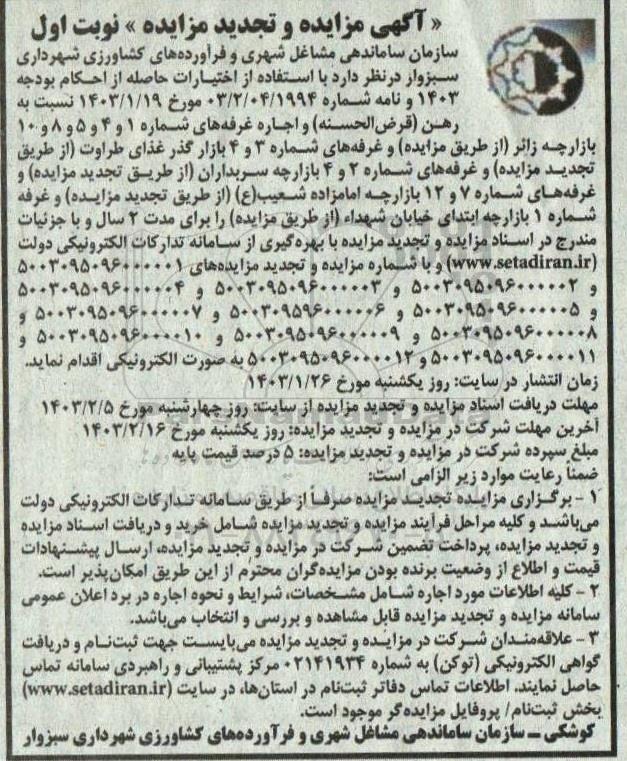 « آگهی مزایده و تجدید مزایده » نوبت اول
سازمان ساماندهی مشاغل شهری و فرآورده‌های کشاورزی شهرداری
سبزوار درنظر دارد با استفاده از اختیارات حاصله از احکام بودجه
۱۴۰۳ و نامه شماره ۰۳/۲/۰۴/۱۹۹۴ مورخ ۱۴۰۳/۱/۱۹ نسبت به
رهن (قرض‌الحسنه) و اجاره غرفه‌های شماره ۱ و ۴ و ۵ و ۸ و ۱۰
بازارچه زائر (از طریق مزایده) و غرفه‌های شماره ۳ و ۴ بازار گذر غذای طراوت (از طریق
تجدید مزایده) و غرفه‌های شماره ۲ و ۴ بازارچه سربداران (از طریق تجدید مزایده) و
غرفه‌های شماره ۷ و ۱۲ بازارچه امامزاده شعیب(ع) (از طریق تجدید مزایده) و غرفه
شماره ۱ بازارچه ابتدای خیابان شهداء (از طریق مزایده) را برای مدت ۲ سال و با جزئیات
مندرج در اسناد مزایده و تجدید مزایده با بهره‌گیری از سامانه تدارکات الکترونیکی دولت
(www.setadiran.ir) و با شماره مزایده و تجدید مزایده‌های ۵۰۰۳۰۹۵۰۹۶۰۰۰۰۰۱
و ۵۰۰۳۰۹۵۰۹۶۰۰۰۰۰۲ و ۵۰۰۳۰۹۵۰۹۶۰۰۰۰۰۳ و ۵۰۰۳۰۹۵۰۹۶۰۰۰۰۰۴
و ۵۰۰۳۰۹۵۰۹۶۰۰۰۰۰۵ و ۵۰۰۳۰۹۵۰۹۶۰۰۰۰۰۶ و ۵۰۰۳۰۹۵۰۹۶۰۰۰۰۰۷ و
۵۰۰۳۰۹۵۰۹۶۰۰۰۰۰۸ و ۵۰۰۳۰۹۵۰۹۶۰۰۰۰۰۹ و ۵۰۰۳۰۹۵۰۹۶۰۰۰۰۱۰ و
۵۰۰۳۰۹۵۰۹۶۰۰۰۰۱۱ و ۵۰۰۳۰۹۵۰۹۶۰۰۰۰۱۲ به صورت الکترونیکی اقدام نماید.
زمان انتشار در سایت: روز یکشنبه مورخ ۱۴۰۳/۱/۲۶
مهلت دریافت اسناد مزایده و تجدید مزایده از سایت: روز چهارشنبه مورخ ۱۴۰۳/۲/۵
آخرین مهلت شرکت در مزایده و تجدید مزایده: روز یکشنبه مورخ ۱۴۰۳/۲/۱۶
مبلغ سپرده شرکت در مزایده و تجدید مزایده: ۵ درصد قیمت پایه
ضمناً رعایت موارد زیر الزامی است:
۱ - برگزاری مزایده تجدید مزایده صرفاً از طریق سامانه تدارکات الکترونیکی دولت
می‌باشد و کلیه مراحل فرآیند مزایده و تجدید مزایده شامل خرید و دریافت اسناد مزایده
و تجدید مزایده، پرداخت تضمین شرکت در مزایده و تجدید مزایده، ارسال پیشنهادات
قیمت و اطلاع از وضعیت برنده بودن مزایده‌گران محترم از این طریق امکان‌پذیر است.
۲ - کلیه اطلاعات مورد اجاره شامل مشخصات، شرایط و نحوه اجاره در برد اعلان عمومی
سامانه مزایده و تجدید مزایده قابل مشاهده و بررسی و انتخاب می‌باشد.
۳ - علاقه‌مندان شرکت در مزایده و تجدید مزایده می‌بایست جهت ثبت‌نام و دریافت
گواهی الکترونیکی (توکن) به شماره ۰۲۱۴۱۹۳۴ مرکز پشتیبانی و راهبردی سامانه تماس
حاصل نمایند. اطلاعات تماس دفاتر ثبت‌نام در استان‌ها، در سایت (www.setadiran.ir)
بخش ثبت‌نام/ پروفایل مزایده‌گر موجود است.
کوشکی ـ سازمان ساماندهی مشاغل شهری و فرآورده‌های کشاورزی شهرداری سبزوار